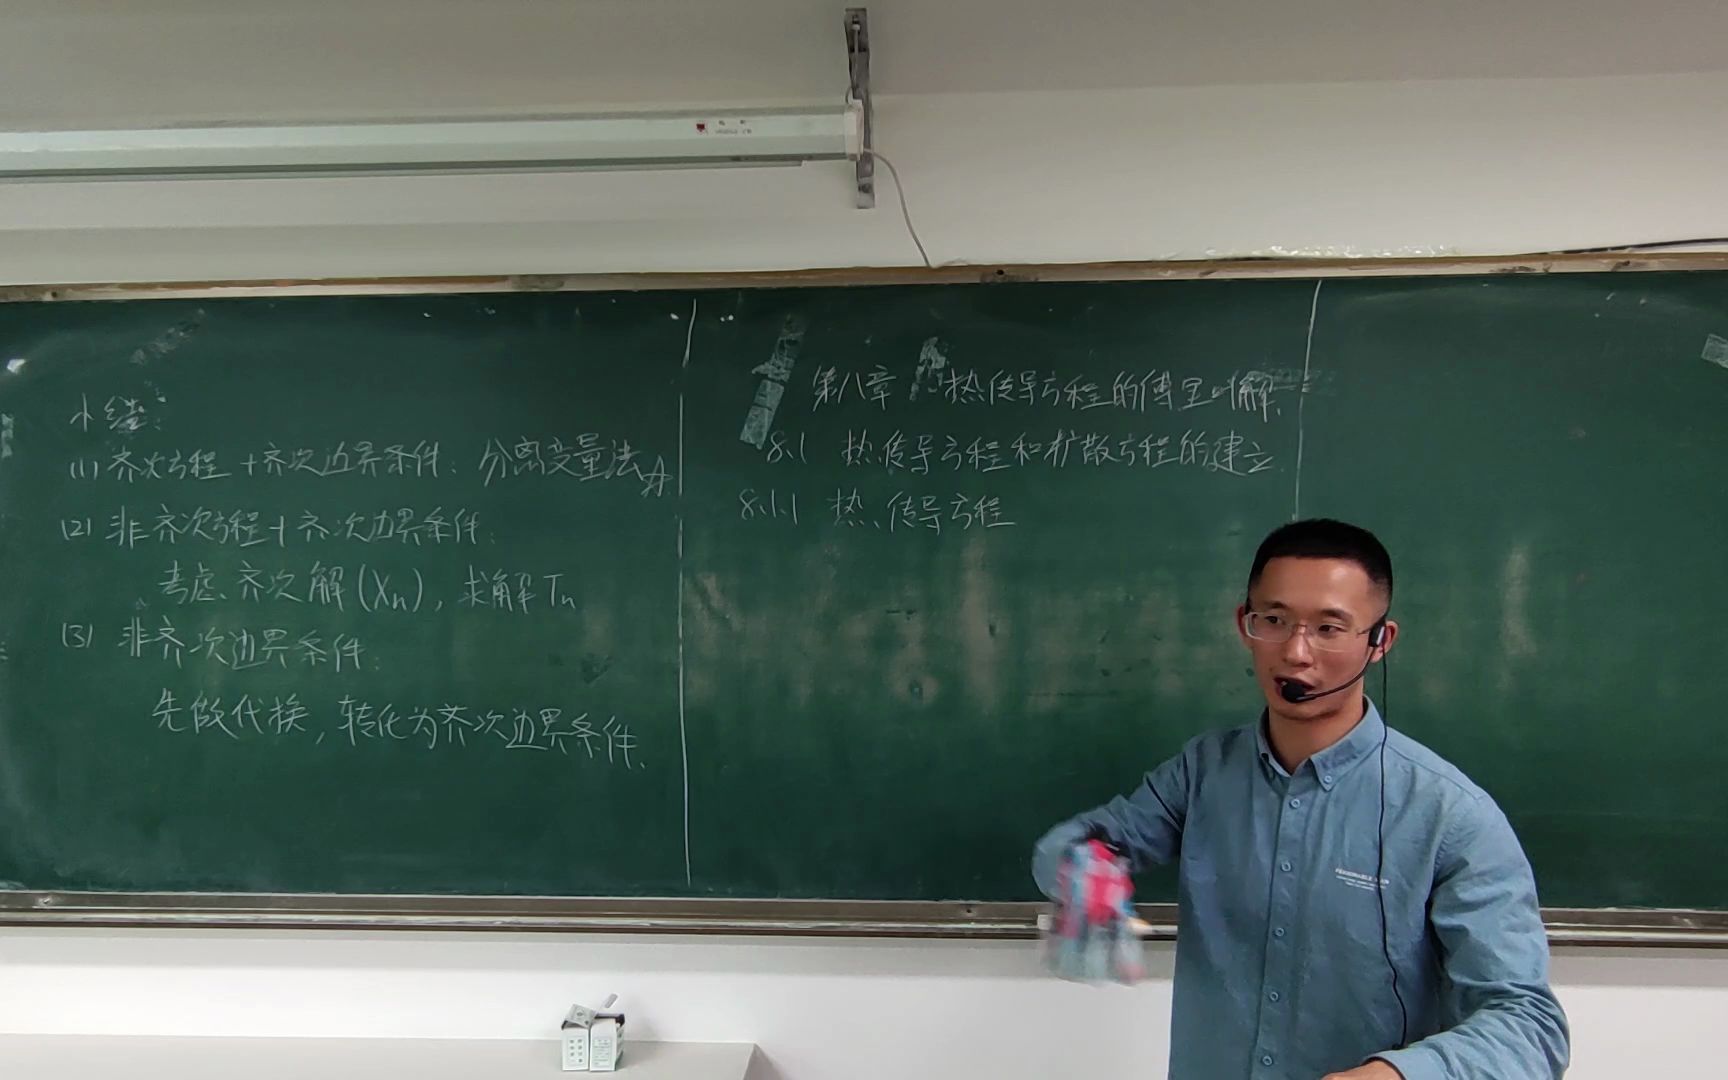 小结:
(1) 齐次方程+齐次边界条件: 分离变量法
(2) 非齐次方程+齐次边界条件:
考虑齐次解(Xn), 求解Tn
(3) 非齐次边界条件:
先做代换, 转化为齐次边界条件.
第八章 热传导方程的傅里叶解
8.1 热传导方程和扩散方程的建立
8.1.1 热传导方程